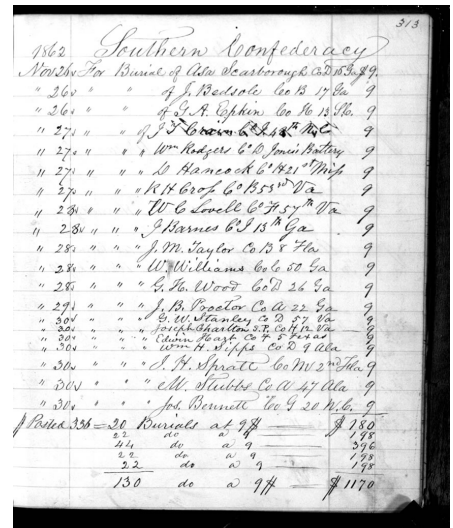 313
1862 Southern Confederacy
Nov 26 For Burial of Asa Scarborough Co D 15 Ga $9.
" 26 of J. Bedsole Co B 17 Ga 9
" 26 of G. A. Epkin Co H 13 9
" 27 " " of J T Co I 48th N.C 9
" 27 " " " Wm Rodgers Co D Jones Battery 9
" 27 " " " D Hancock Co H 21st Miss 9
" 27 " " " R H Crop Co B 53rd Va 9
" 28 " " " W C Lovell Co F 57th Va 9
" 28 " " " J Barnes Co I 13th Ga 9
" 28 " " " J. M. Taylor Co B 8 Fla 9
" 28 " " " W. Williams Co C 50 Ga 9
" 28 " " " G. H. Wood Co D 26 Ga 9
" 29 " " " J. B. Proctor Co A 22 Ga 9
" 30 " " " G. W. Stanley Co D 57 Va 9
" 30 " " " Joseph Charlton Co H 12 Va 9
" 30 " " " Edwin Hart Co F 5 Texas 9
" 30 " " " Wm H. Sipps Co D 9 Ala 9
" 30 " " " J. H. Spratt Co M 2nd Fla 9
" 30 " " " M. Stubbs Co A 47 Ala 9
" 30 " " " Jos. Bennett Co G 20 N.C. 9
Posted 336 = 20 Burials at 9$ $180
22 do a 9 198
44 do a 9 396
22 do a 9 198
22 do a 9 198
130 do a 9$ $1170